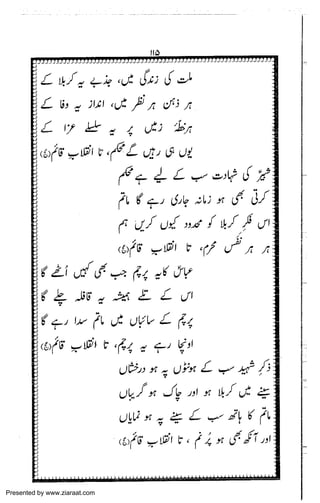 ۱۱۵
ملت کی زندگی میں، جذبے یہ کربلا کے
ہر ذہن ہر نظر میں، انداز یہ وفا کے
ہر خطۂ زمیں پر یہ سلسلے عزا کے
یوں ہی رہیں گے محکم، تا انقلابِ قائم(ع)
شبیرؑ کی شہادت سب کے لیے ہے محکم
کرتی بھی ہو زمانہ جاری رہے گا ماتم
اس فکرِ کربلا کو محدود کیوں کریں ہم
ہر ہر نفس محرم، تا انقلابِ قائم(ع)
عباسؑ کا یہ پرچم جب بھی کہیں اُٹھے گا
اس کے تلے ہمیشہ یہ قافلہ چلے گا
پرچم کے سائباں میں ماتم سدا رہے گا
اونچا رہے یہ پرچم، تا انقلابِ قائم(ع)
ذکرِ شہید سب کے ہونٹوں پہ ہو درخشاں
سینے میں کربلا ہو اور چاک ہو گریباں
ماتم کا ہاتھ سب کے سینے پہ ہو نمایاں
اور آنکھ بھی ہو پُرنم، تا انقلابِ قائم(ع)
Presented by www.ziaraat.com